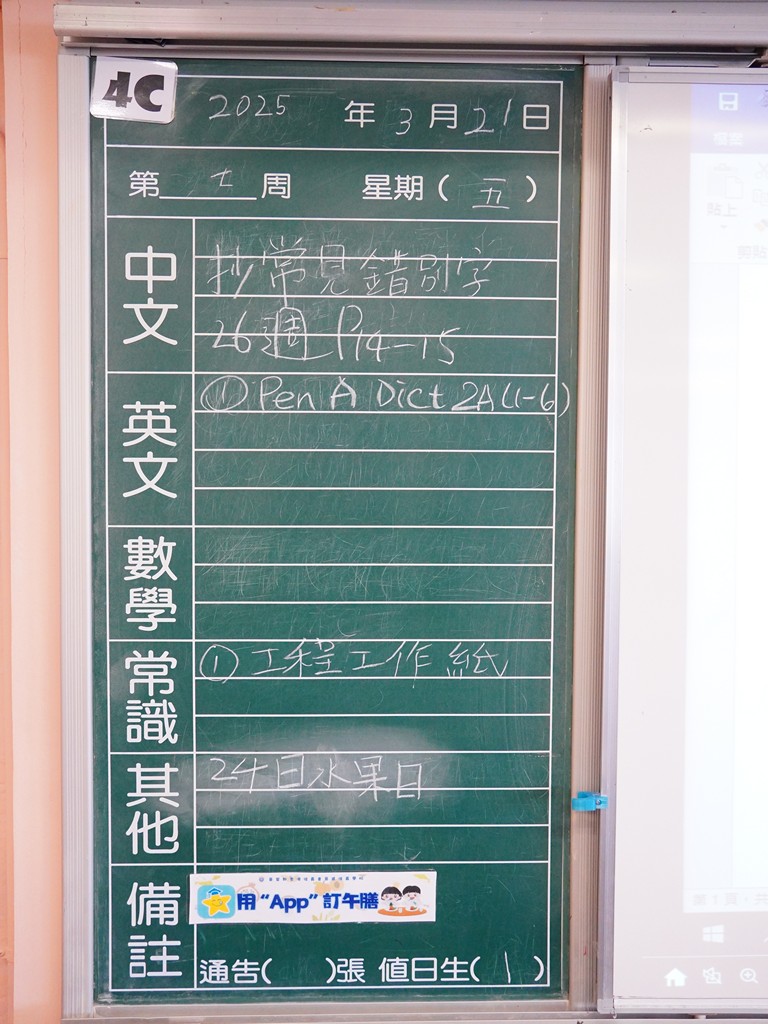 4C
2025 年 3 月 21 日
第 七 周 星期( 五 )
中文
抄常見錯別字
26週 P14-15
英文
① Pen A Dict 2A(1-6)
數學
常識
① 工程工作紙
其他
24日水果日
備註
用“App”訂午膳
通告( )張 值日生( 1 )
貼上